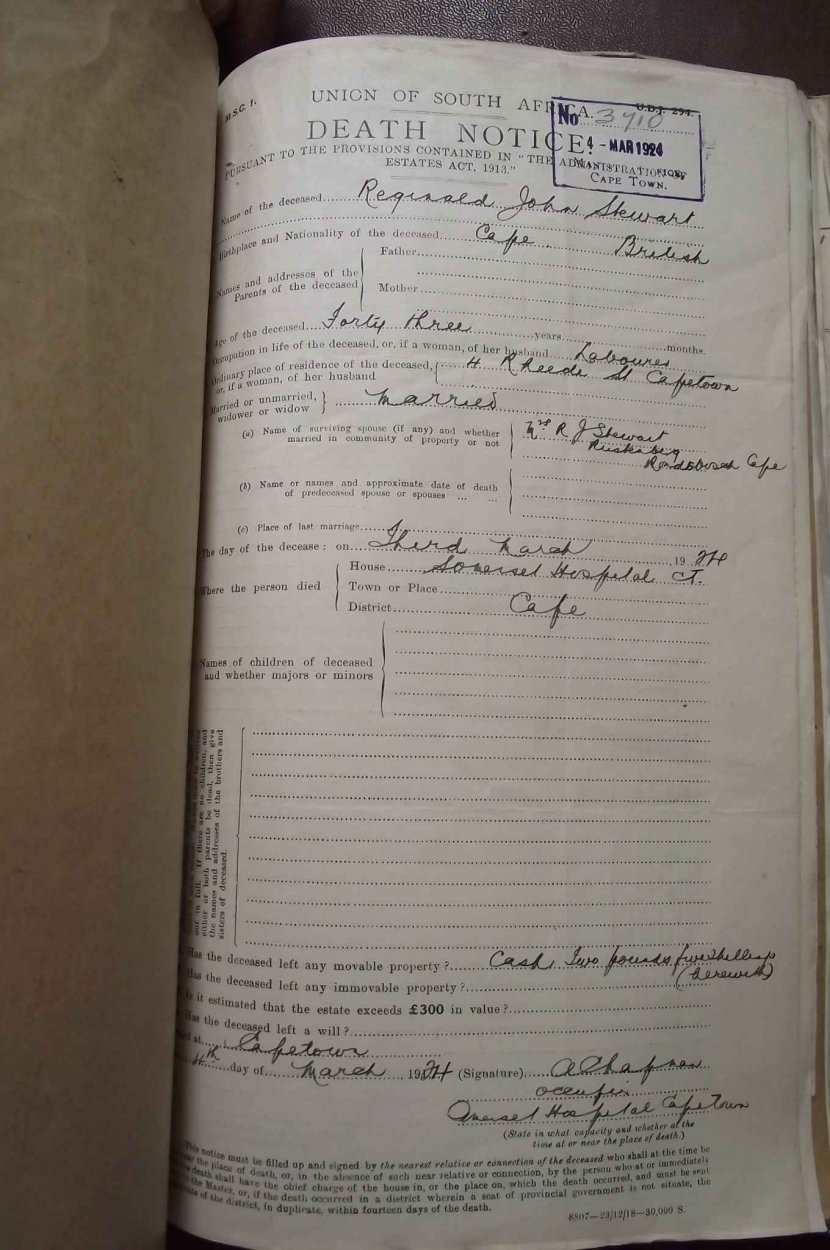 M.S.C. 1.
UNION OF SOUTH AFRICA.
U.D.J. 294.
No 3710
DEATH NOTICE.
4 - MAR 1924
PURSUANT TO THE PROVISIONS CONTAINED IN "THE ADMINISTRATION OF
ESTATES ACT, 1913."
CAPE TOWN.
Name of the deceased Reginald John Stewart
Birthplace and Nationality of the deceased Cape British
Names and addresses of the
Parents of the deceased
Father
Mother
Age of the deceased Forty three years months.
Occupation in life of the deceased, or, if a woman, of her husband Labourer
Ordinary place of residence of the deceased,
or, if a woman, of her husband
4 Rheede St Capetown
Married or unmarried,
widower or widow
Married
(a) Name of surviving spouse (if any) and whether
married in community of property or not
Mrs R J Stewart
Rondebosch Cape
(b) Name or names and approximate date of death
of predeceased spouse or spouses ... ...
(c) Place of last marriage
The day of the decease: on Third March 1924
Where the person died
House Somerset Hospital CT.
Town or Place
District Cape
Names of children of deceased
and whether majors or minors
out in full. If there are no children, and
either or both parents be dead, then give
the names and addresses of the brothers and
sisters of deceased.
Has the deceased left any movable property? Cash Two pounds five shillings
(herewith)
Has the deceased left any immovable property?
Is it estimated that the estate exceeds £300 in value?
Has the deceased left a will?
at Capetown
4th day of March, 1924 (Signature) A Chapman
occupier
Somerset Hospital Cape Town
(State in what capacity and whether at the
time at or near the place of death.)
This notice must be filled up and signed by the nearest relative or connection of the deceased who shall at the time be
the place of death, or, in the absence of such near relative or connection, by the person who at or immediately
death shall have the chief charge of the house in, or the place on, which the death occurred, and must be sent
the Master, or, if the death occurred in a district wherein a seat of provincial government is not situate, the
of the district, in duplicate, within fourteen days of the death.
8807—23/12/18—30,000 S.